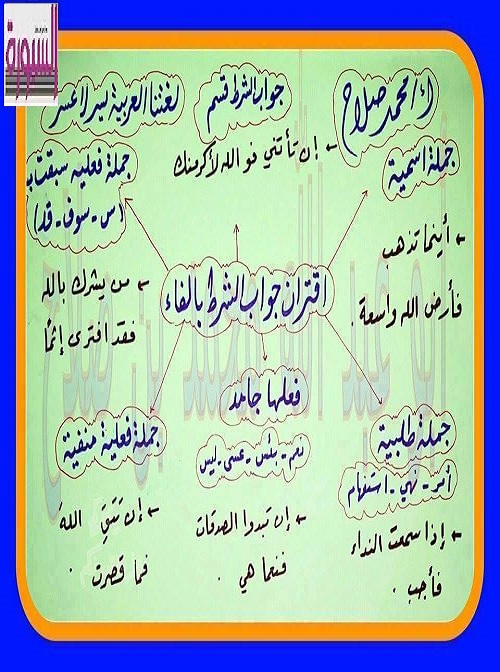 السبورة
أ/محمد صلاح
جواب الشرط قسم
لغتنا العربية يسر لا عسر
← إن تأتني فو الله لأكرمنك
جملة اسمية
← أينما تذهب
فأرض الله واسعة .
جملة فعلية سبقت بـ
(س - سوف - قد)
← من يشرك بالله
فقد افترى إثمًا
اقتران جواب الشرط بالفاء
جملة طلبية
أمر - نهي - استفهام
← إذا سمعت النداء
فأجب .
فعلها جامد
نعم - بئس - عسى - ليس
← إن تبدوا الصدقات
فنعما هي .
جملة فعلية منفية
← إن تتقِ اللهَ
فما قصرت .